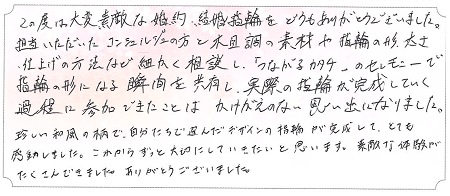 この度は大変素敵な婚約、結婚指輪をどうもありがとうございました。
担当いただいたコンシェルジュの方と木目調の素材や指輪の形、太さ
仕上げの方法など細かく相談し、「つながるカタチ」のセレモニーで
指輪の形になる瞬間を共有し、実際の指輪が完成していく
過程に参加できたことはかけがえのない思い出になりました。
珍しい和風の柄で、自分たちで選んだデザインの指輪が完成して、とても
感動しました。これからずっと大切にしていきたいと思います。素敵な体験が
たくさんできました。ありがとうございました。